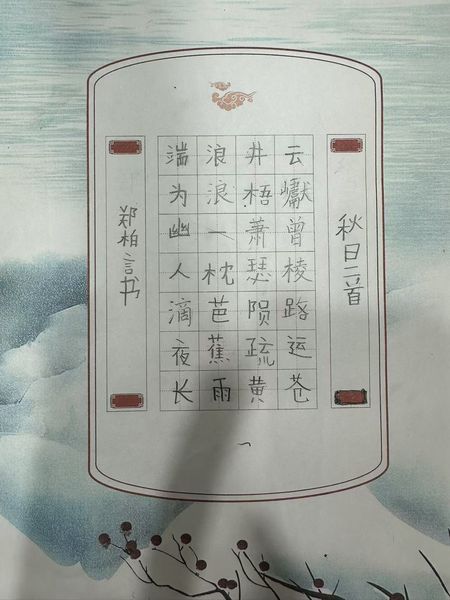 秋日二首
云巘曾棱路运苍
井梧萧瑟陨疏黄
浪浪一枕芭蕉雨
端为幽人滴夜长
郑柏言书
一